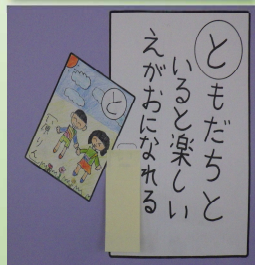 ともだちと
いると楽しい
えがおになれる
と